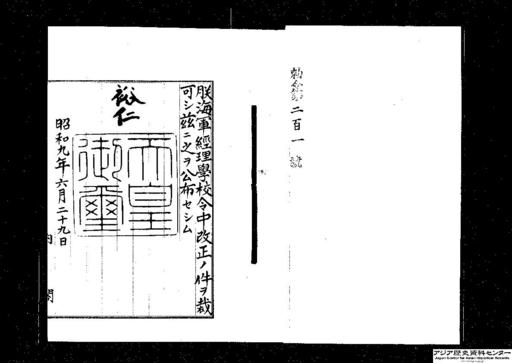 勅令第二百一號
朕海軍經理學校令中改正ノ件ヲ裁
可シ茲ニ之ヲ公布セシム
裕仁
天皇
御璽
昭和九年六月二十九日
内閣
アジア歴史資料センター
Japan Center for Asian Historical Records